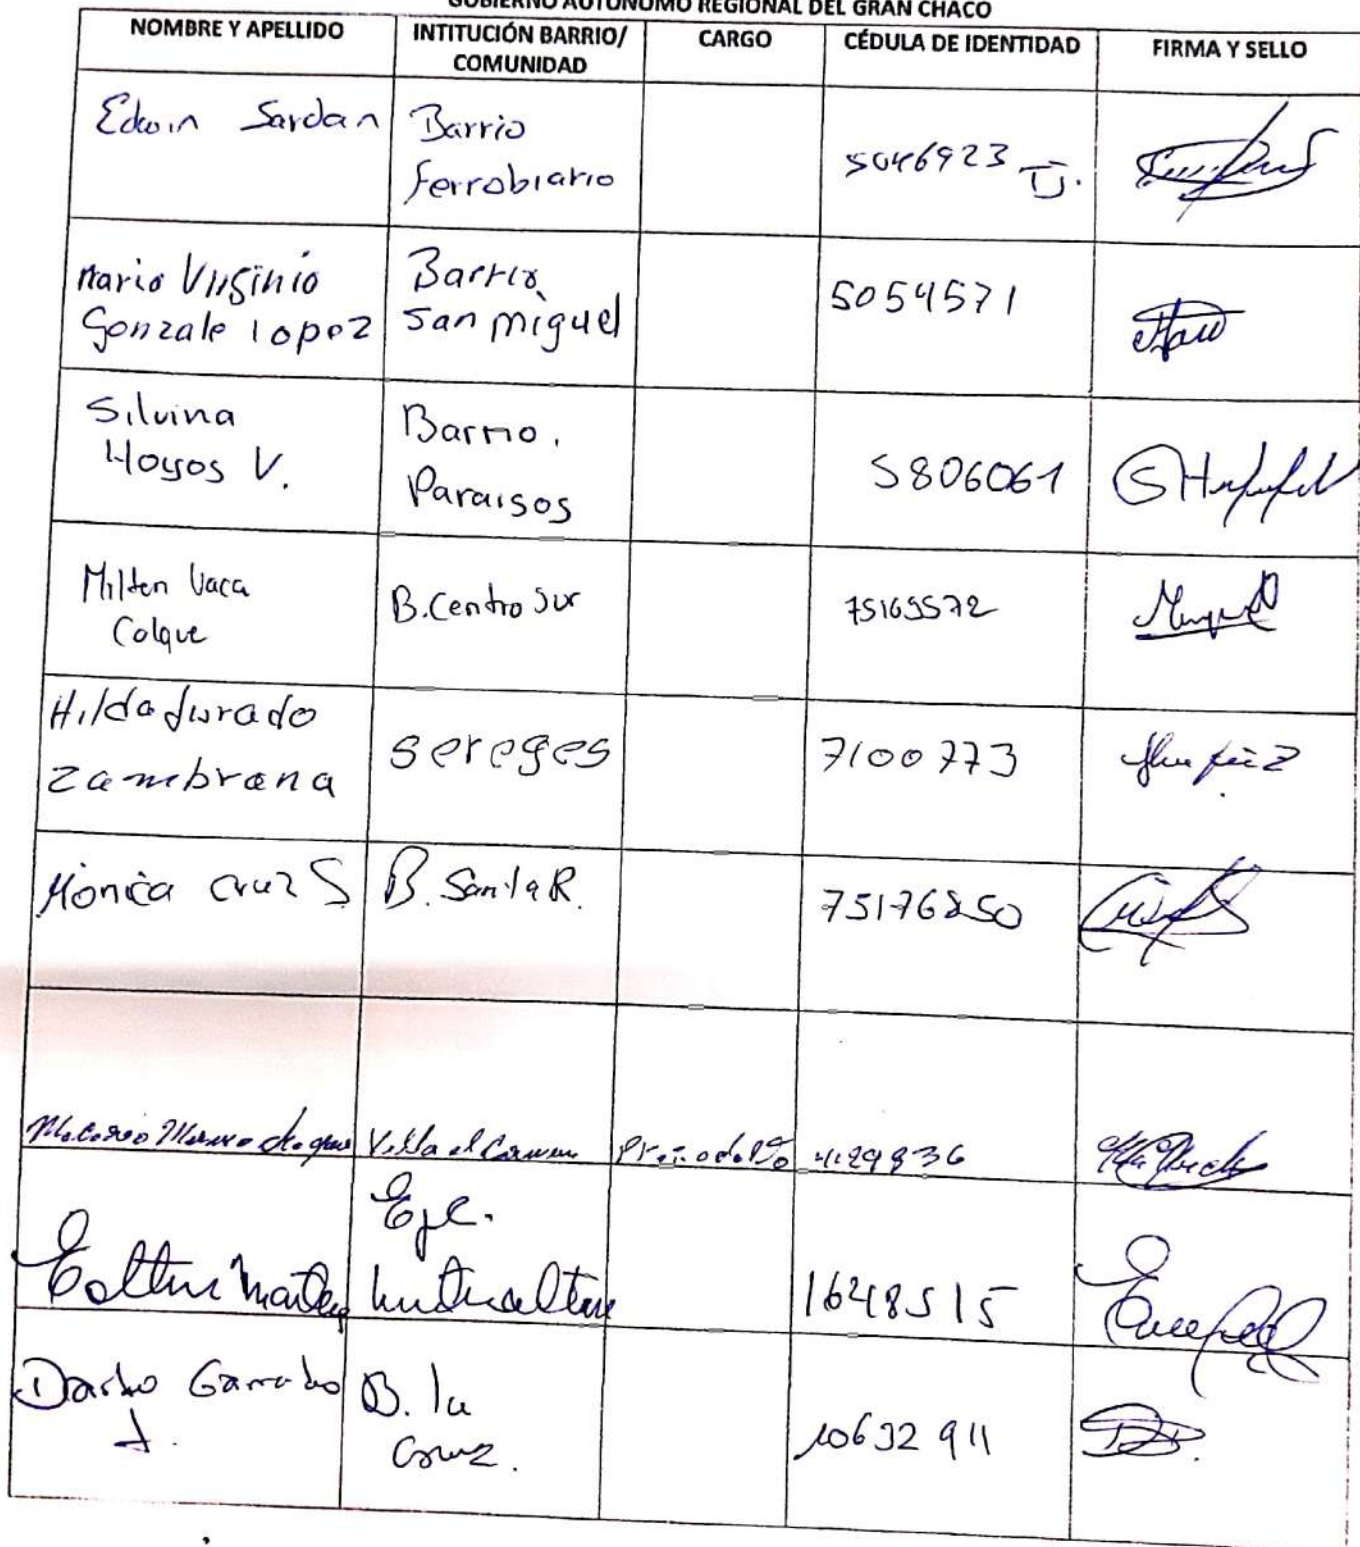 GOBIERNO AUTÓNOMO REGIONAL DEL GRAN CHACO
NOMBRE Y APELLIDO
INTITUCIÓN BARRIO/
COMUNIDAD
CARGO
CÉDULA DE IDENTIDAD
FIRMA Y SELLO
Edwin Sardan
Barrio
ferrobiario
5046923 TJ.
Mario Virginio
Gonzale lopez
Barrio
san miguel
5054571
Silvina
Hoyos V.
Barrio.
Paraisos
5806061
Milton Vaca
Colque
B. Centro Sur
75165572
Hilda Jurado
Zambrana
sereges
7100773
Mónica Cruz S
B. Santa R.
75176850
Villa el Carmen
4129836
1648515
Garrado
B. la
Cruz.
10632911